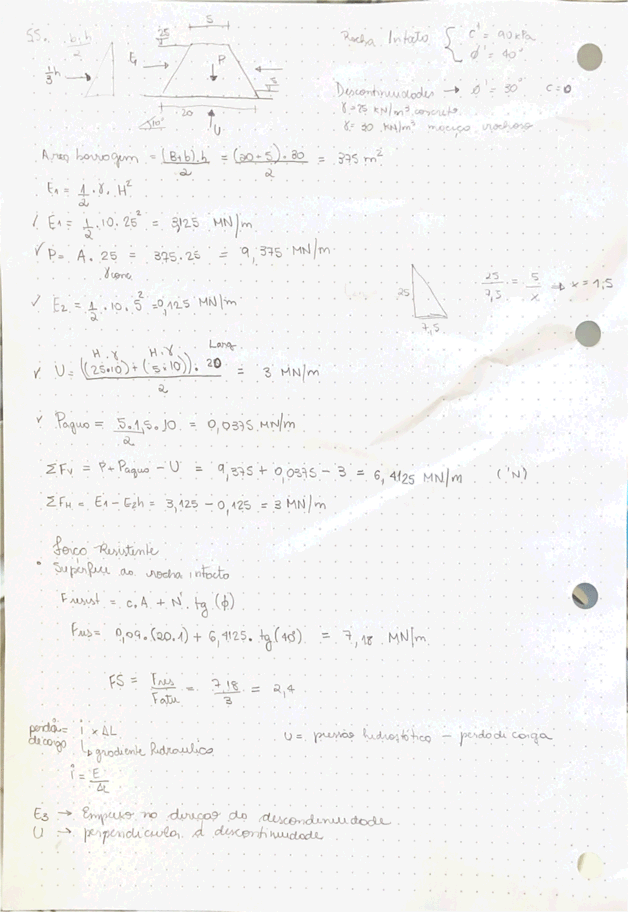 SS.
b.h
2
1/3 h
25
2
E1
5
P
5
2
20
10°
U
Rocha Intacta { c' = 90 kPa
ϕ' = 40°
Descontinuidades → ϕ' = 30° c = 0
γ = 25 kN/m³ concreto
γ = 30 kN/m³ maciço rochoso
Area barragem = (B+b).h / 2 = (20+5).30 / 2 = 375 m²
E1 = 1/2 . γ . H²
E1 = 1/2 . 10 . 25² = 3,125 MN/m
✓ P = A . 25 = 375.25 = 9,375 MN/m
γ conc
✓ E2 = 1/2 . 10 . 5² = 0,125 MN/m
25
7,5
25/7,5 = 5/x → x = 1,5
H . γ H . γ Larg
✓ U = ((25.10) + (5.10)) . 20 / 2 = 3 MN/m
✓ Pagua = 5.1,5.10 / 2 = 0,0375 MN/m
ΣFv = P + Pagua - U = 9,375 + 0,0375 - 3 = 6,4125 MN/m ('N)
ΣFH = E1 - E2h = 3,125 - 0,125 = 3 MN/m
Força Resistente
• Superfície da rocha intacta
Fresist = c.A + N'. tg (ϕ)
Fres = 0,09.(20.1) + 6,4125. tg(40°) = 7,18 MN/m
FS = Fres/Fatu = 7,18/3 = 2,4
perda = i × ΔL
de carga ↳ gradiente hidraulico
i = E/ΔL
U = pressão hidrostática - perda de carga
E3 → Empuxo na direção da descontinuidade
U → perpendicular à descontinuidade